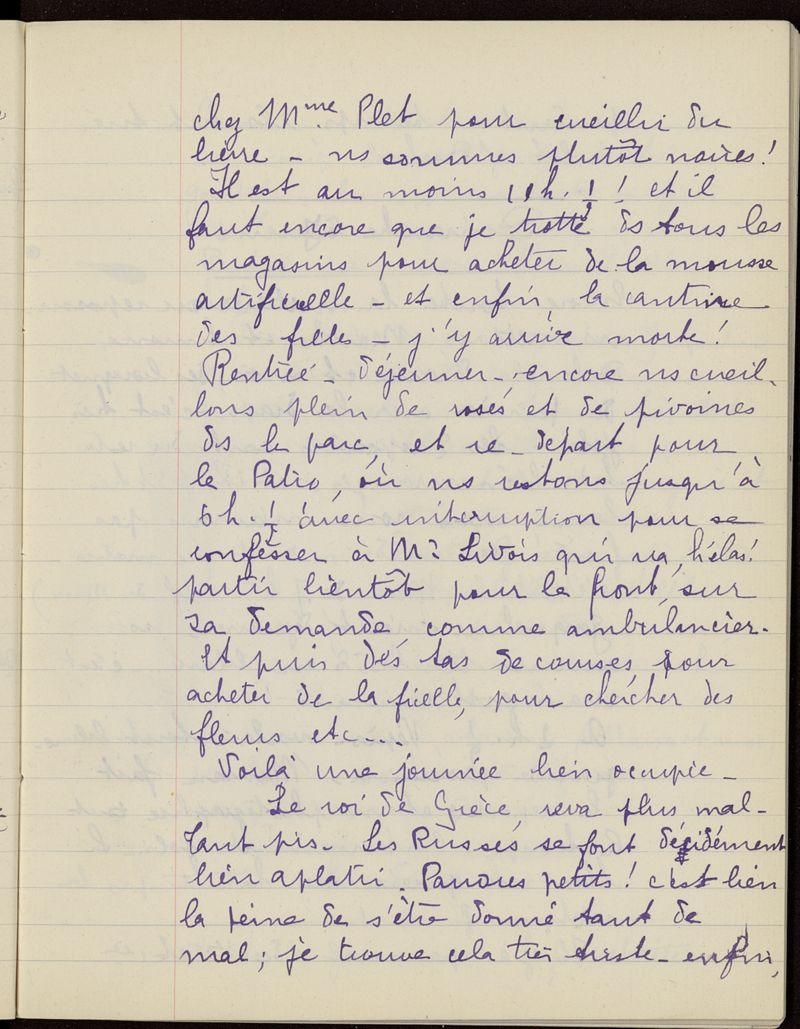 chez Mme. Plet pour cueillir du
lierre - ns sommes plutôt noires!
Il est au moins 11h. 1/2! et il
faut encore que je trotte ds tous les
magasins pour acheter de la mousse
artificielle - et enfin, la cantine
des filles - j'y arrive morte!
Rentrée - déjeuner - encore ns cueil-
lons plein de roses et de pivoines
ds le parc, et re-départ pour
le Patro, où ns restons jusqu'à
5h. 1/2 avec interruption pour se
confesser à Mr Livois qui va, hélas!
partir bientôt pour le front, sur
sa demande, comme ambulancier.
Et puis des tas de courses pour
acheter de la ficelle, pour chercher des
fleurs etc...
Voilà une journée bien occupée -
Le roi de Grèce, reva plus mal -
Tant pis. Les Russes se font décidément
bien aplatir. Pauvres petits! c'est bien
la peine de s'être donné tant de
mal; je trouve cela très triste - enfin,